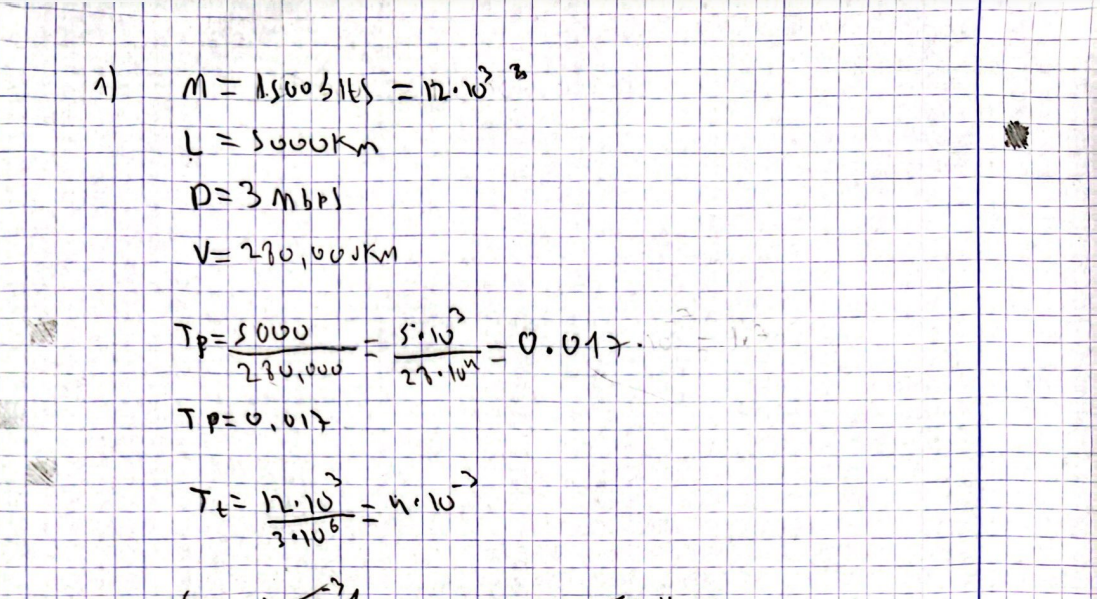 1) M = 1500Bits = 12·10³
L = 5000Km
D = 3 Mbps
V = 280,000Km
Tp = 5000 / 280,000 = 5·10³ / 28·10⁴ = 0.017.
Tp = 0.017
Tt = 12·10³ / 3·10⁶ = 4·10⁻³